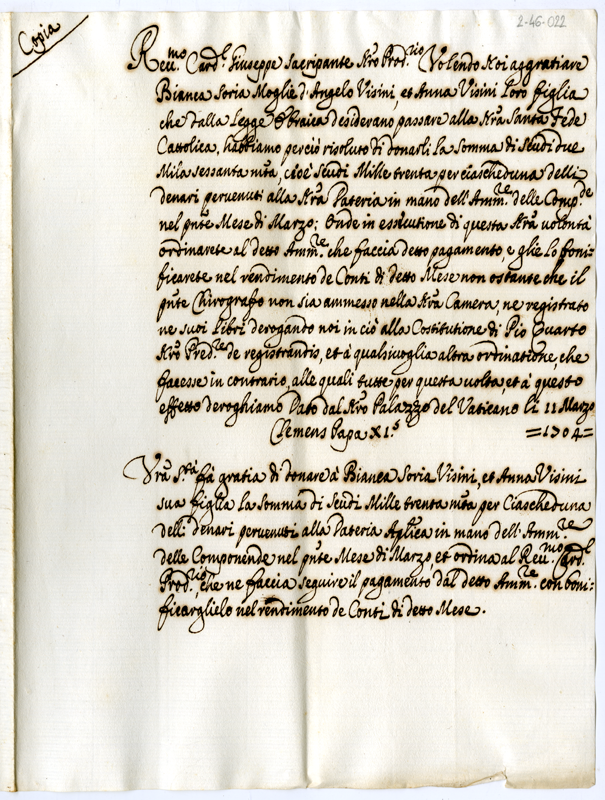 2-46-022
Copia
Reu.mo Card.l Giuseppe Sacripante Nro Prod.rio Volendo Noi aggratiare
Bianca Soria Moglie d'Angelo Visini, et Anna Visini loro figlia
che dalla Legge Ebraica desiderano passare alla Nra Santa Fede
Cattolica, habbiamo perciò risoluto di donarli la somma di Scudi due
Mila sessanta mta, cioè Scudi Mille trenta per ciascheduna delli
denari pervenuti alla Nra Dateria in mano dell'Amm.re delle Comp.de
nel pnte Mese di Marzo; Onde in essecutione di questa Nra volontà
ordinarete al detto Amm.re che faccia detto pagamento, e glie lo boni=
ficarete nel rendimento de Conti di detto Mese non ostante che il
pnte Chirografo non sia ammesso nella Nra Camera, ne registrato
ne suoi Libri derogando noi in ciò alla Costitutione di Pio Quarto
Nro Pred.re de registrandis, et à qualsivoglia altra ordinatione, che
facesse in contrario, alle quali tutte per questa volta, et à questo
effetto deroghiamo Dato dal Nro Palazzo del Vaticano li 11 Marzo
Clemens Papa XI.s =1704=
Vra S.tà fà gratia di donare à Bianca Soria Visini, et Anna Visini
sua figlia la somma di Scudi Mille trenta mta per Ciascheduna
delli denari pervenuti alla Dateria Aplica in mano dell'Amm.re
delle Componende nel pnte Mese di Marzo, et ordina al Reu.mo Card.l
Prod.rio, che ne faccia seguire il pagamento dal detto Amm.re con boni=
ficarglielo nel rendimento de Conti di detto Mese.